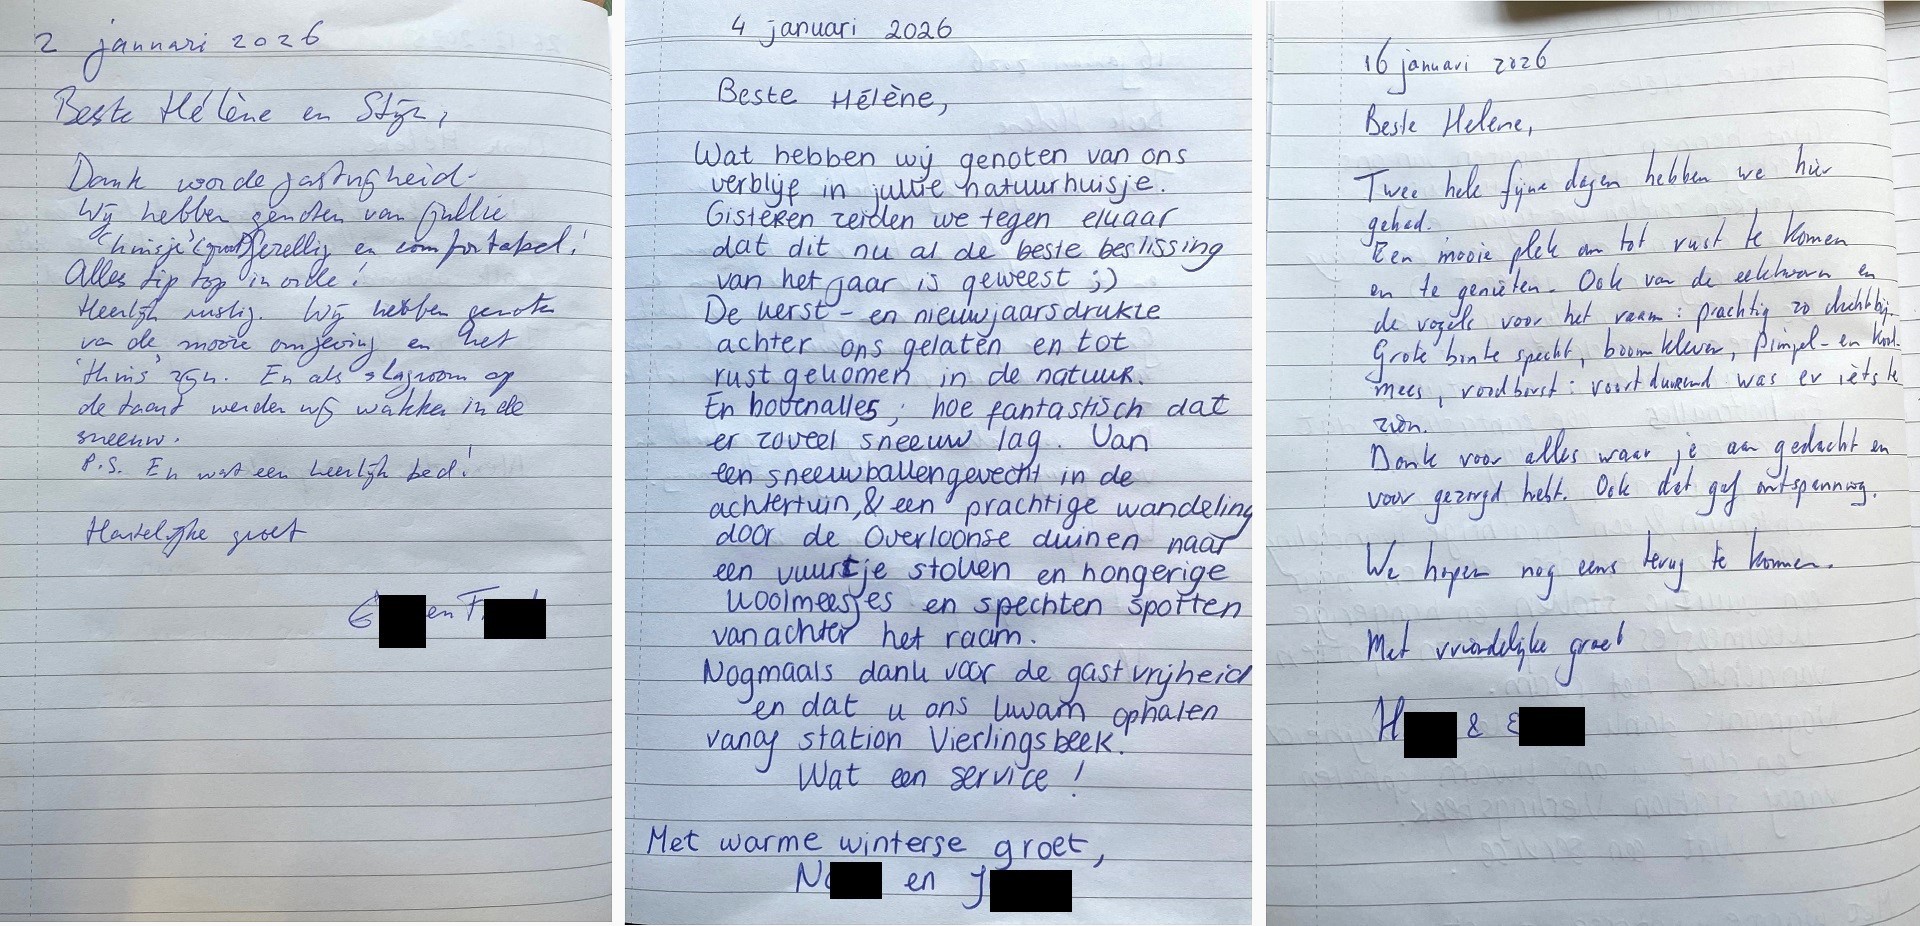 2 januari 2026
Beste Hélène en Stijn,
Dank voor de gastvrijheid.
Wij hebben genoten van jullie
'huisje' gezellig en comfortabel!
Alles tip top in orde!
Heerlijk rustig. Wij hebben genoten
van de mooie omgeving en het
'thuis' zijn. En als slagroom op
de taart werden wij wakker in de
sneeuw.
P.S. En wat een heerlijk bed!
Hartelijke groet
en
4 januari 2026
Beste Hélène,
Wat hebben wij genoten van ons
verblijf in jullie natuurhuisje.
Gisteren zeiden we tegen elkaar
dat dit nu al de beste beslissing
van het jaar is geweest ;)
De kerst- en nieuwjaarsdrukte
achter ons gelaten en tot
rust gekomen in de natuur.
En bovenalles, hoe fantastisch dat
er zoveel sneeuw lag. Van
een sneeuwballengevecht in de
achtertuin, & een prachtige wandeling
door de Overloonse duinen naar
een vuurtje stoken en hongerige
koolmeesjes en spechten spotten
van achter het raam.
Nogmaals dank voor de gastvrijheid
en dat u ons kwam ophalen
vanaf station Vierlingsbeek.
Wat een service!
Met warme winterse groet,
en
16 januari 2026
Beste Helene,
Twee hele fijne dagen hebben we hier
gehad.
Een mooie plek om tot rust te komen
en te genieten. Ook van de eekhoorn en
de vogels voor het raam: prachtig zo dichtbij.
Grote bonte specht, boomklever, pimpel- en kool-
mees, roodborst: voortdurend was er iets te
zien.
Dank voor alles waar je aan gedacht en
voor gezorgd hebt. Ook dat gaf ontspanning.
We hopen nog eens terug te komen.
Met vriendelijke groet
H &